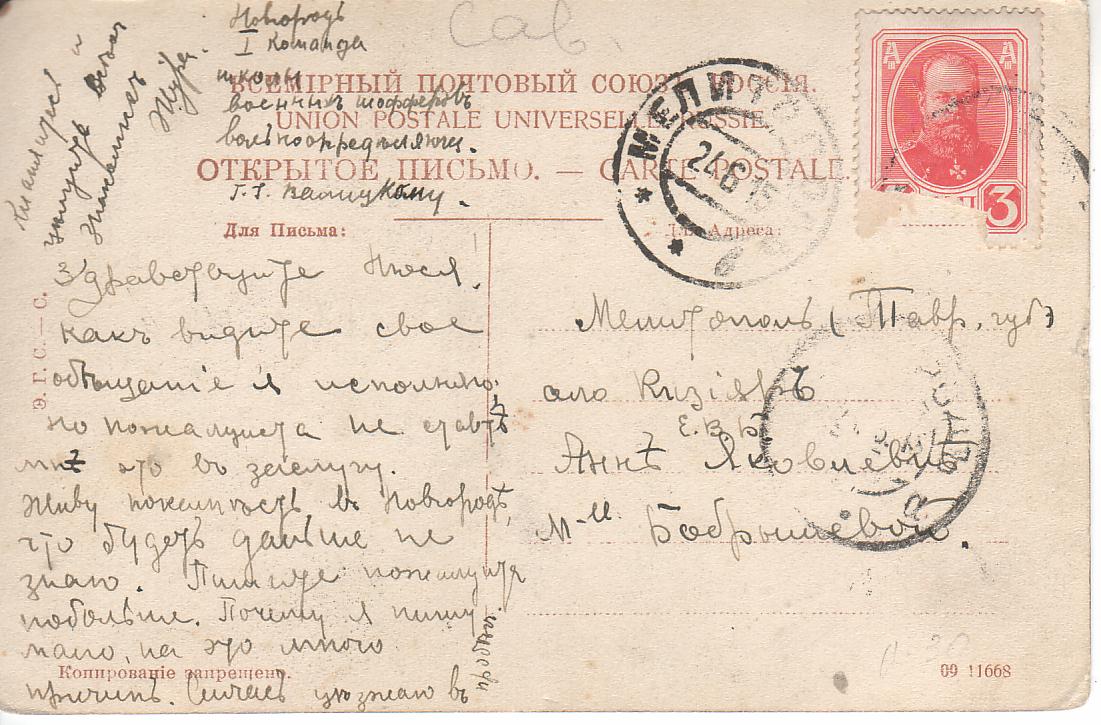 Новгородъ
I Команда
школы
военныхъ шофферовъ
вольноопредѣляющ.
Г. Г.
Саѵ.
ВСЕМИРНЫЙ ПОЧТОВЫЙ СОЮЗЪ РОССІЯ.
UNION POSTALE UNIVERSELLE RUSSIE.
ОТКРЫТОЕ ПИСЬМО. — CARTE POSTALE.
МЕЛИТОПОЛЬ
24 6 15
3
Для Письма:
Для Адреса:
Кланяйтесь и
цѣлуйте всѣхъ
знакомыхъ
Жура.
Здравствуйте Нюся!
какъ видите свое
обѣщаніе я исполняю,
но пожалуйста не ставьте
мнѣ это въ заслугу.
Живу покамѣсть въ Новгородѣ,
что будетъ дальше не
знаю. Пишите пожалуйста
побольше. Почему я пишу
мало, на это много
причинъ. Сейчасъ уѣзжаю въ
Мелитополь (Тавр. губ)
село Кизіяръ
Е. В. Б.
Аннѣ Яковлевнѣ
М-ll Бобрышевой.
Э. Г. С. — С.
Копированіе запрещено.
09 11668